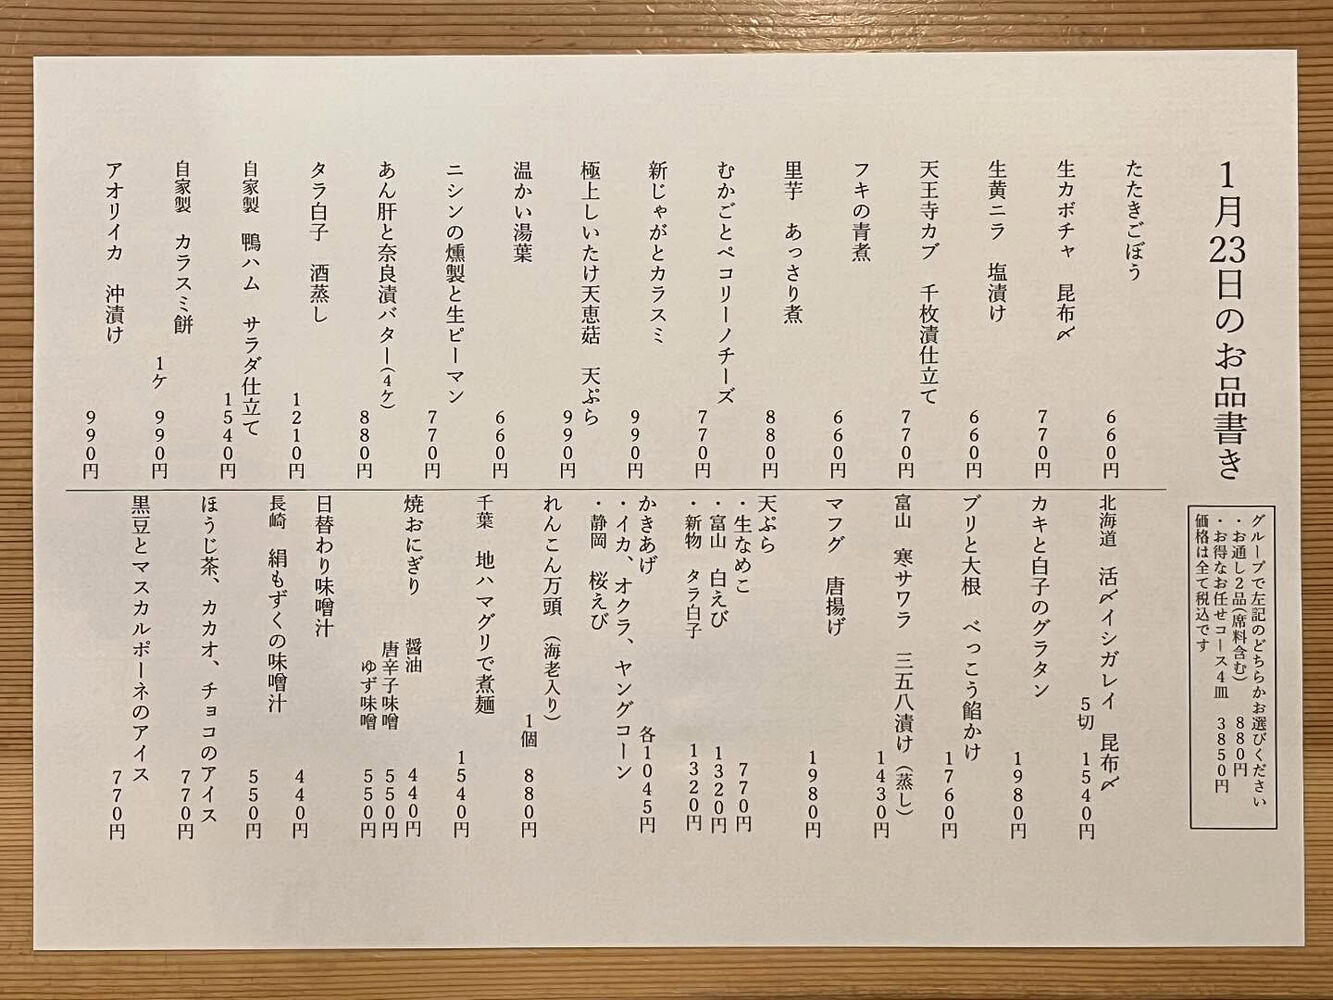 1月23日のお品書き
グループで左記のどちらかお選びください
・お通し2品(席料含む) 880円
・お得なお任せコース4皿 3850円
価格は全て税込です
たたきごぼう 660円
生カボチャ 昆布〆 770円
生黄ニラ 塩漬け 660円
天王寺カブ 千枚漬仕立て 770円
フキの青煮 660円
里芋 あっさり煮 880円
むかごとペコリーノチーズ 770円
新じゃがとカラスミ 990円
極上しいたけ天恵菇 天ぷら 990円
温かい湯葉 660円
ニシンの燻製と生ピーマン 770円
あん肝と奈良漬バター(4ケ) 880円
タラ白子 酒蒸し 1210円
自家製 鴨ハム サラダ仕立て 1540円
自家製 カラスミ餅 1ケ 990円
アオリイカ 沖漬け 990円
北海道 活〆イシガレイ 昆布〆 5切 1540円
カキと白子のグラタン 1980円
ブリと大根 べっこう餡かけ 1760円
富山 寒サワラ 三五八漬け(蒸し) 1430円
マフグ 唐揚げ 1980円
天ぷら
・生なめこ 770円
・富山 白えび 1320円
・新物 タラ白子 1320円
かきあげ 各1045円
・イカ、オクラ、ヤングコーン
・静岡 桜えび
れんこん万頭(海老入り) 1個 880円
千葉 地ハマグリで煮麺 1540円
焼おにぎり 醤油 440円
唐辛子味噌 550円
ゆず味噌 550円
日替わり味噌汁 440円
長崎 絹もずくの味噌汁 550円
ほうじ茶、カカオ、チョコのアイス 770円
黒豆とマスカルポーネのアイス 770円